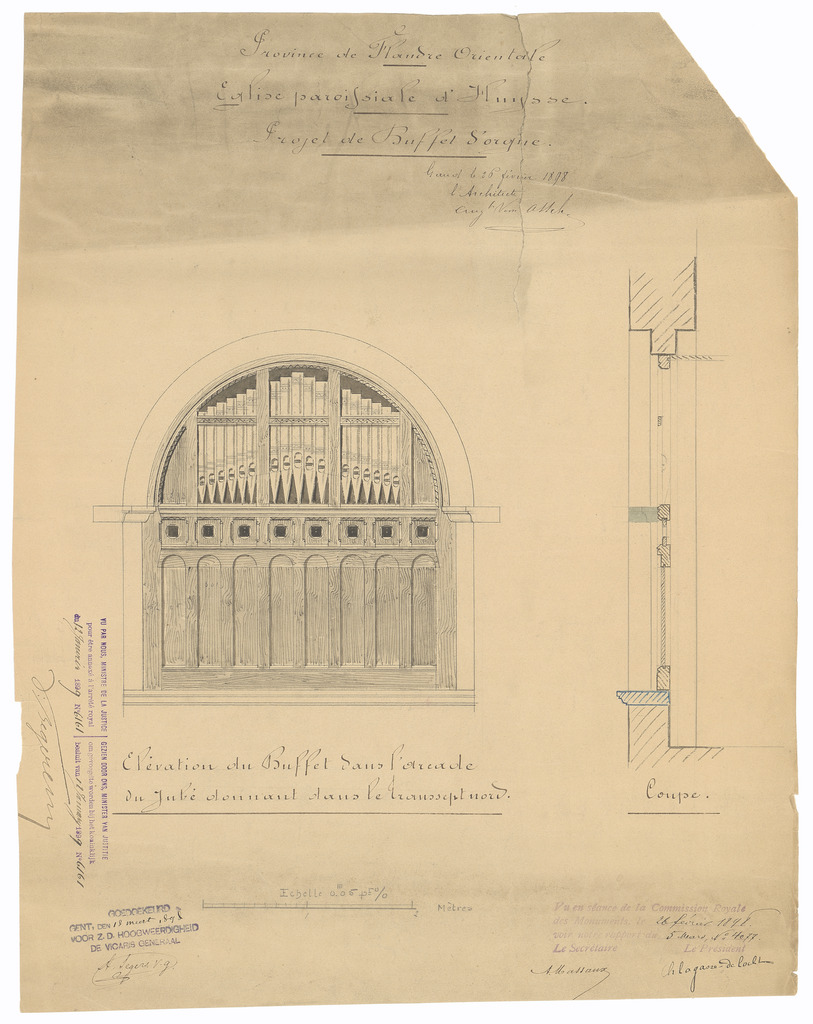 Province de Flandre Orientale
Eglise paroissiale d'Huysse.
Projet de Buffet d'orgue.
Gand le 26 février 1898
l'Architecte
Augte Van Assche
Elévation du Buffet dans l'arcade
du Jubé donnant dans le transept nord.
Coupe.
Echelle 0.05 p. %
Mètres
VU PAR NOUS, MINISTRE DE LA JUSTICE
pour être annexé à l'arrêté royal
du 12 Janvier 1899 Nº 16161
GEZIEN DOOR ONS, MINISTER VAN JUSTITIE
om gevoegd te worden bij het koninklijk
besluit van 12 Januari 1899 Nº 16161
GOEDGEKEURD
GENT, DEN 18 maart 1898
VOOR Z. D. HOOGWEERDIGHEID
DE VICARIS GENERAAL
Vu en séance de la Commission Royale
des Monuments, le 26 février 1898.
voir notre rapport du 5 Mars, Nº
Le Secrétaire Le Président
A. Massaux